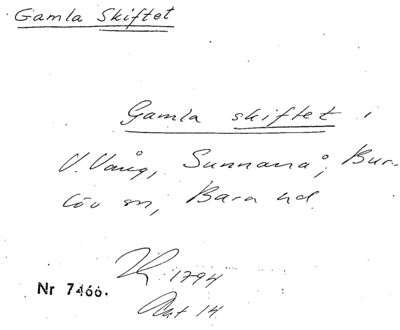 Gamla Skiftet
Gamla skiftet i
V. Vång, Sunnanå, Bur-
löv sn, Bara hd.
1794
Nr 7466.
Akt 14